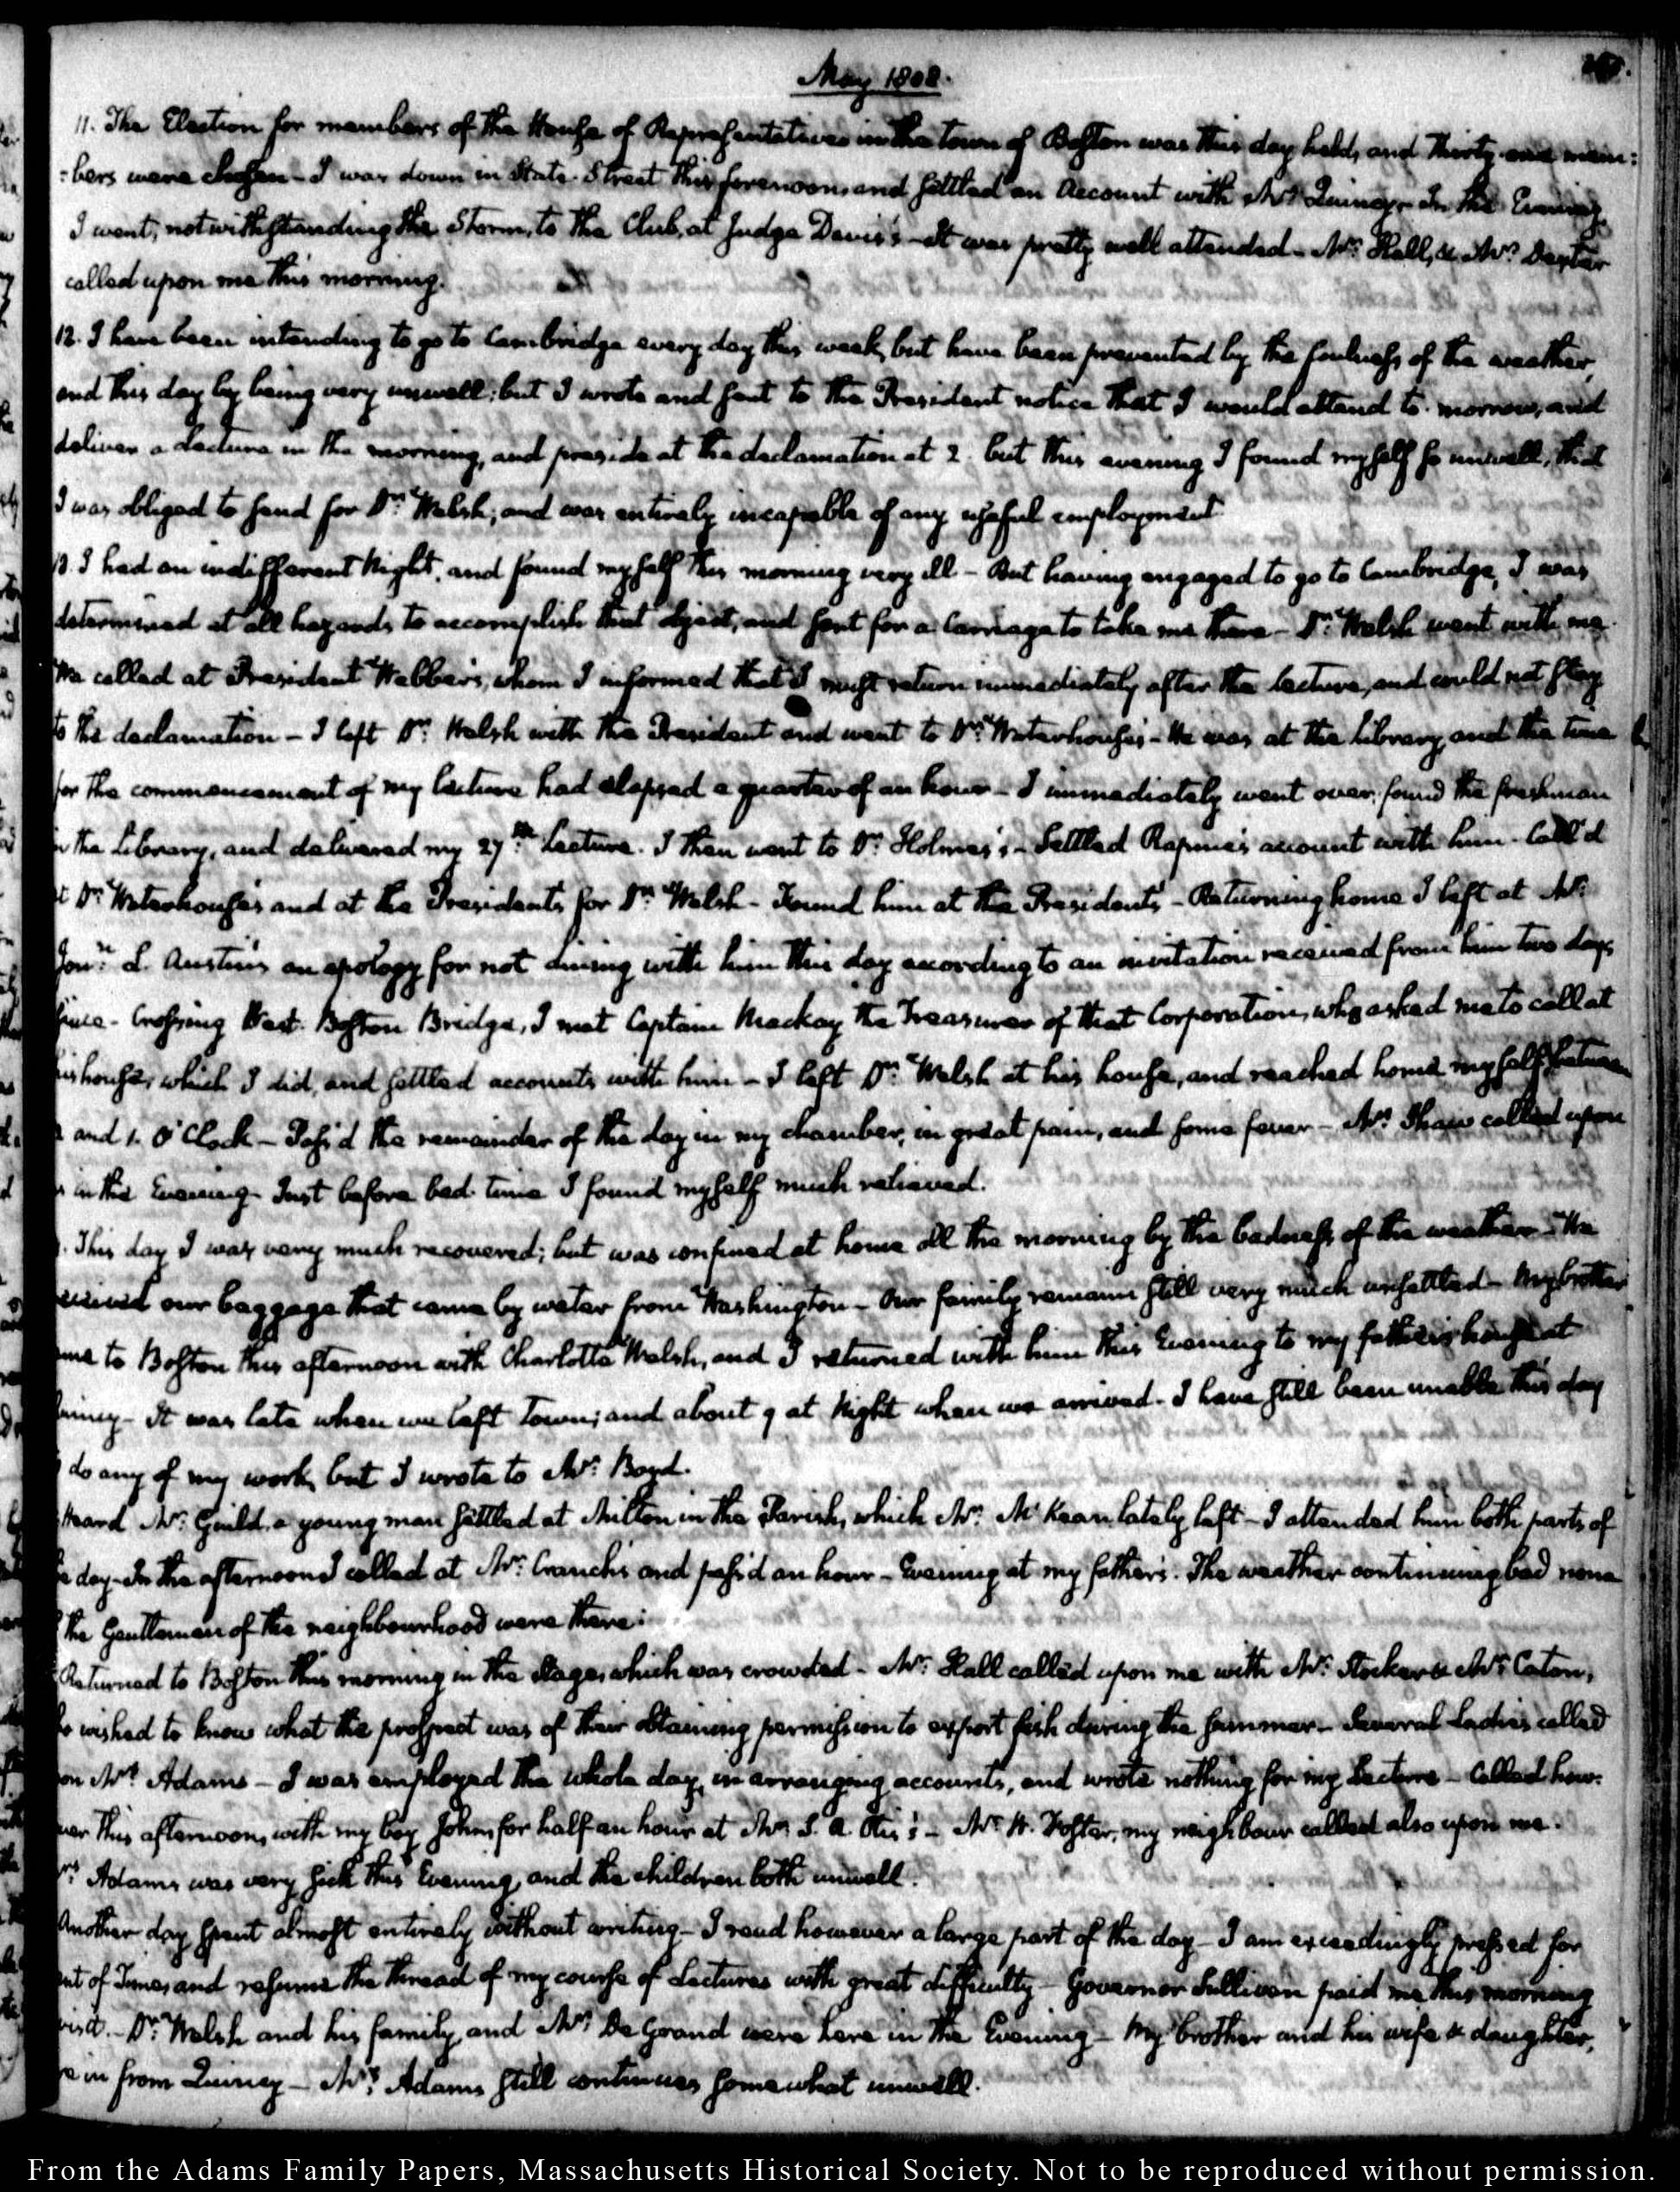 May 1808.
11. The Election for members of the House of Representatives in the town of Boston was this day held, and thirty one mem:
:bers were chosen - I was down in State-Street this forenoon, and settled an account with Mr. Quincy - In the Evening,
I went, notwithstanding the Storm, to the Club, at Judge Davis's - It was pretty well attended - Mr. Hall, & Mr. Dexter
called upon me this morning.
12. I have been intending to go to Cambridge every day this week, but have been prevented by the foulness of the weather,
and this day by being very unwell; but I wrote and sent to the President notice that I would attend to-morrow, and
deliver a Lecture in the morning, and preside at the declamation at 2. but this evening I found myself so unwell, that
I was obliged to send for Dr. Welsh; and was entirely incapable of any useful employment
13. I had an indifferent Night, and found myself this morning very ill - But having engaged to go to Cambridge, I was
determined at all hazards to accomplish that object, and sent for a Carriage to take me there - Dr. Welsh went with me.
We called at President Webber's, whom I informed that I must return immediately after the lecture, and could not stay
to the declamation - I left Dr. Welsh with the President and went to Dr. Waterhouse's - He was at the Library, and the time
for the commencement of my lecture had elapsed a quarter of an hour - I immediately went over, found the freshmen
in the Library, and delivered my 27th. Lecture. I then went to Dr. Holmes's - Settled account with him. Call'd
at Dr. Waterhouse's and at the Presidents for Dr. Welsh - Found him at the Presidents - Returning home I left at Mr.
Jon.n L. Austin's an apology for not dining with him this day according to an invitation received from him two days
since - Crossing West-Boston Bridge, I met Captain Mackay the Treasurer of that Corporation, who asked me to call at
his house, which I did, and settled accounts with him - I left Dr. Welsh at his house, and reached home myself between
and 1. O'Clock - Pass'd the remainder of the day in my chamber, in great pain, and some fever - Mr. Shaw called upon
in the Evening - Just before bed-time I found myself much relieved.
This day I was very much recovered; but was confined at home all the morning by the badness of the weather - We
received our baggage that came by water from Washington - Our family remain still very much unsettled - My brother
came to Boston this afternoon with Charlotte Welsh, and I returned with him this Evening to my father's house at
Quincy - It was late when we left town; and about 9 at Night when we arrived - I have still been unable this day
do any of my work, but I wrote to Mr. Boyd.
Heard Mr. Guild, a young man settled at Milton in the Parish, which Mr. McKean lately left - I attended him both parts of
the day - In the afternoon I called at Mr. Cranch's and pass'd an hour - Evening at my father's. The weather continuing bad none
the Gentlemen of the neighbourhood were there.
Returned to Boston this morning in the Stage, which was crowded - Mr. Hall called upon me with Mr. Stocker & Mr. Caton,
who wished to know what the prospect was of their obtaining permission to export fish during the summer - Several Ladies called
on Mrs. Adams - I was employed the whole day, in arranging accounts, and wrote nothing for my Lecture - Called how-
ever this afternoon, with my boy John, for half an hour at Mr. S. A. Otis's - Mr. W. Foster, my neighbour called also upon me.
Mrs. Adams was very sick this Evening, and the children both unwell.
Another day spent almost entirely without writing - I read however a large part of the day - I am exceedingly pressed for
want of Time, and resume the thread of my course of Lectures with great difficulty - Governor Sullivan paid me this morning
visit. - Dr. Welsh and his family, and Mr. De Grand were here in the Evening - My brother and his wife & daughter,
in from Quincy - Mrs. Adams still continues somewhat unwell.
From the Adams Family Papers, Massachusetts Historical Society. Not to be reproduced without permission.